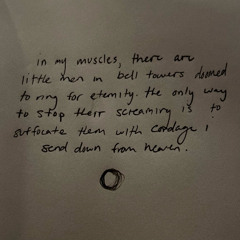 in my muscles, there are
little men in bell towers doomed
to ring for eternity. the only way
to stop their screaming is to
suffocate them with cordage i
send down from heaven.